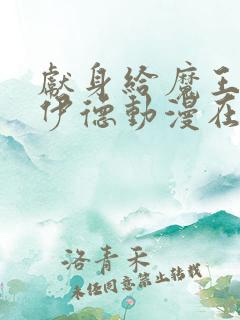 獻身給魔王
伊德動漫在
洛青禾
未經同意禁止轉載